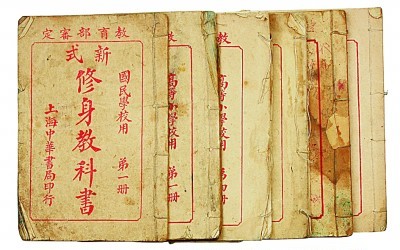 教育部審定
新式
國民學校用 第一册
修身教科書
上海中華書局印行
教
高等小學校用 第一册
教
高等小學校用 第四册